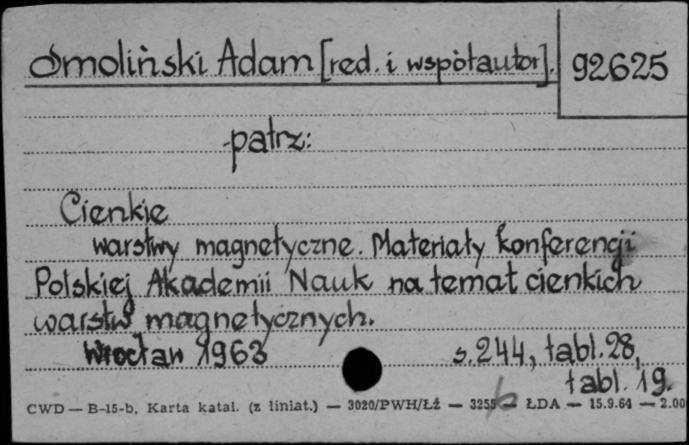 Smoliński Adam [red. i współautor]. 92625
patrz:
Cienkie
warstwy magnetyczne. Materiały konferencji
Polskiej Akademii Nauk na temat cienkich
warstw magnetycznych.
Wrocław 1963 s. 244, tabl. 28,
tabl. 19.
CWD — B-15-b, Karta katal. (z liniat.) — 3020/PWH/Łż — 3255 — ŁDA — 15.9.64 — 2.00